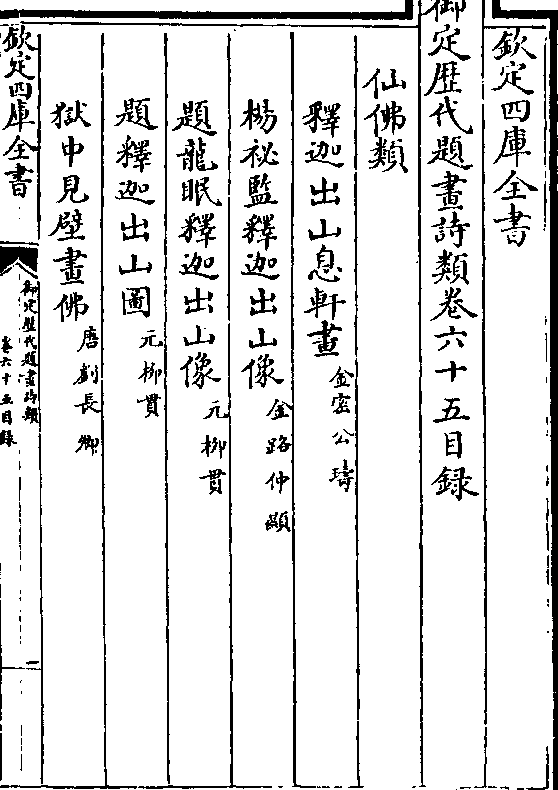 欽定四庫全書
御定歷代題畫詩類卷六十五目録
仙佛類
釋迦出山息軒畫 金密公璹
楊祕監釋迦出山像 金路仲顯
題龍眠釋迦出山像 元柳貫
題釋迦出山圖 元柳貫
獄中見壁畫佛 唐劉長卿
欽定四庫全書
御定歷代題畫詩類
卷六十五目録
一